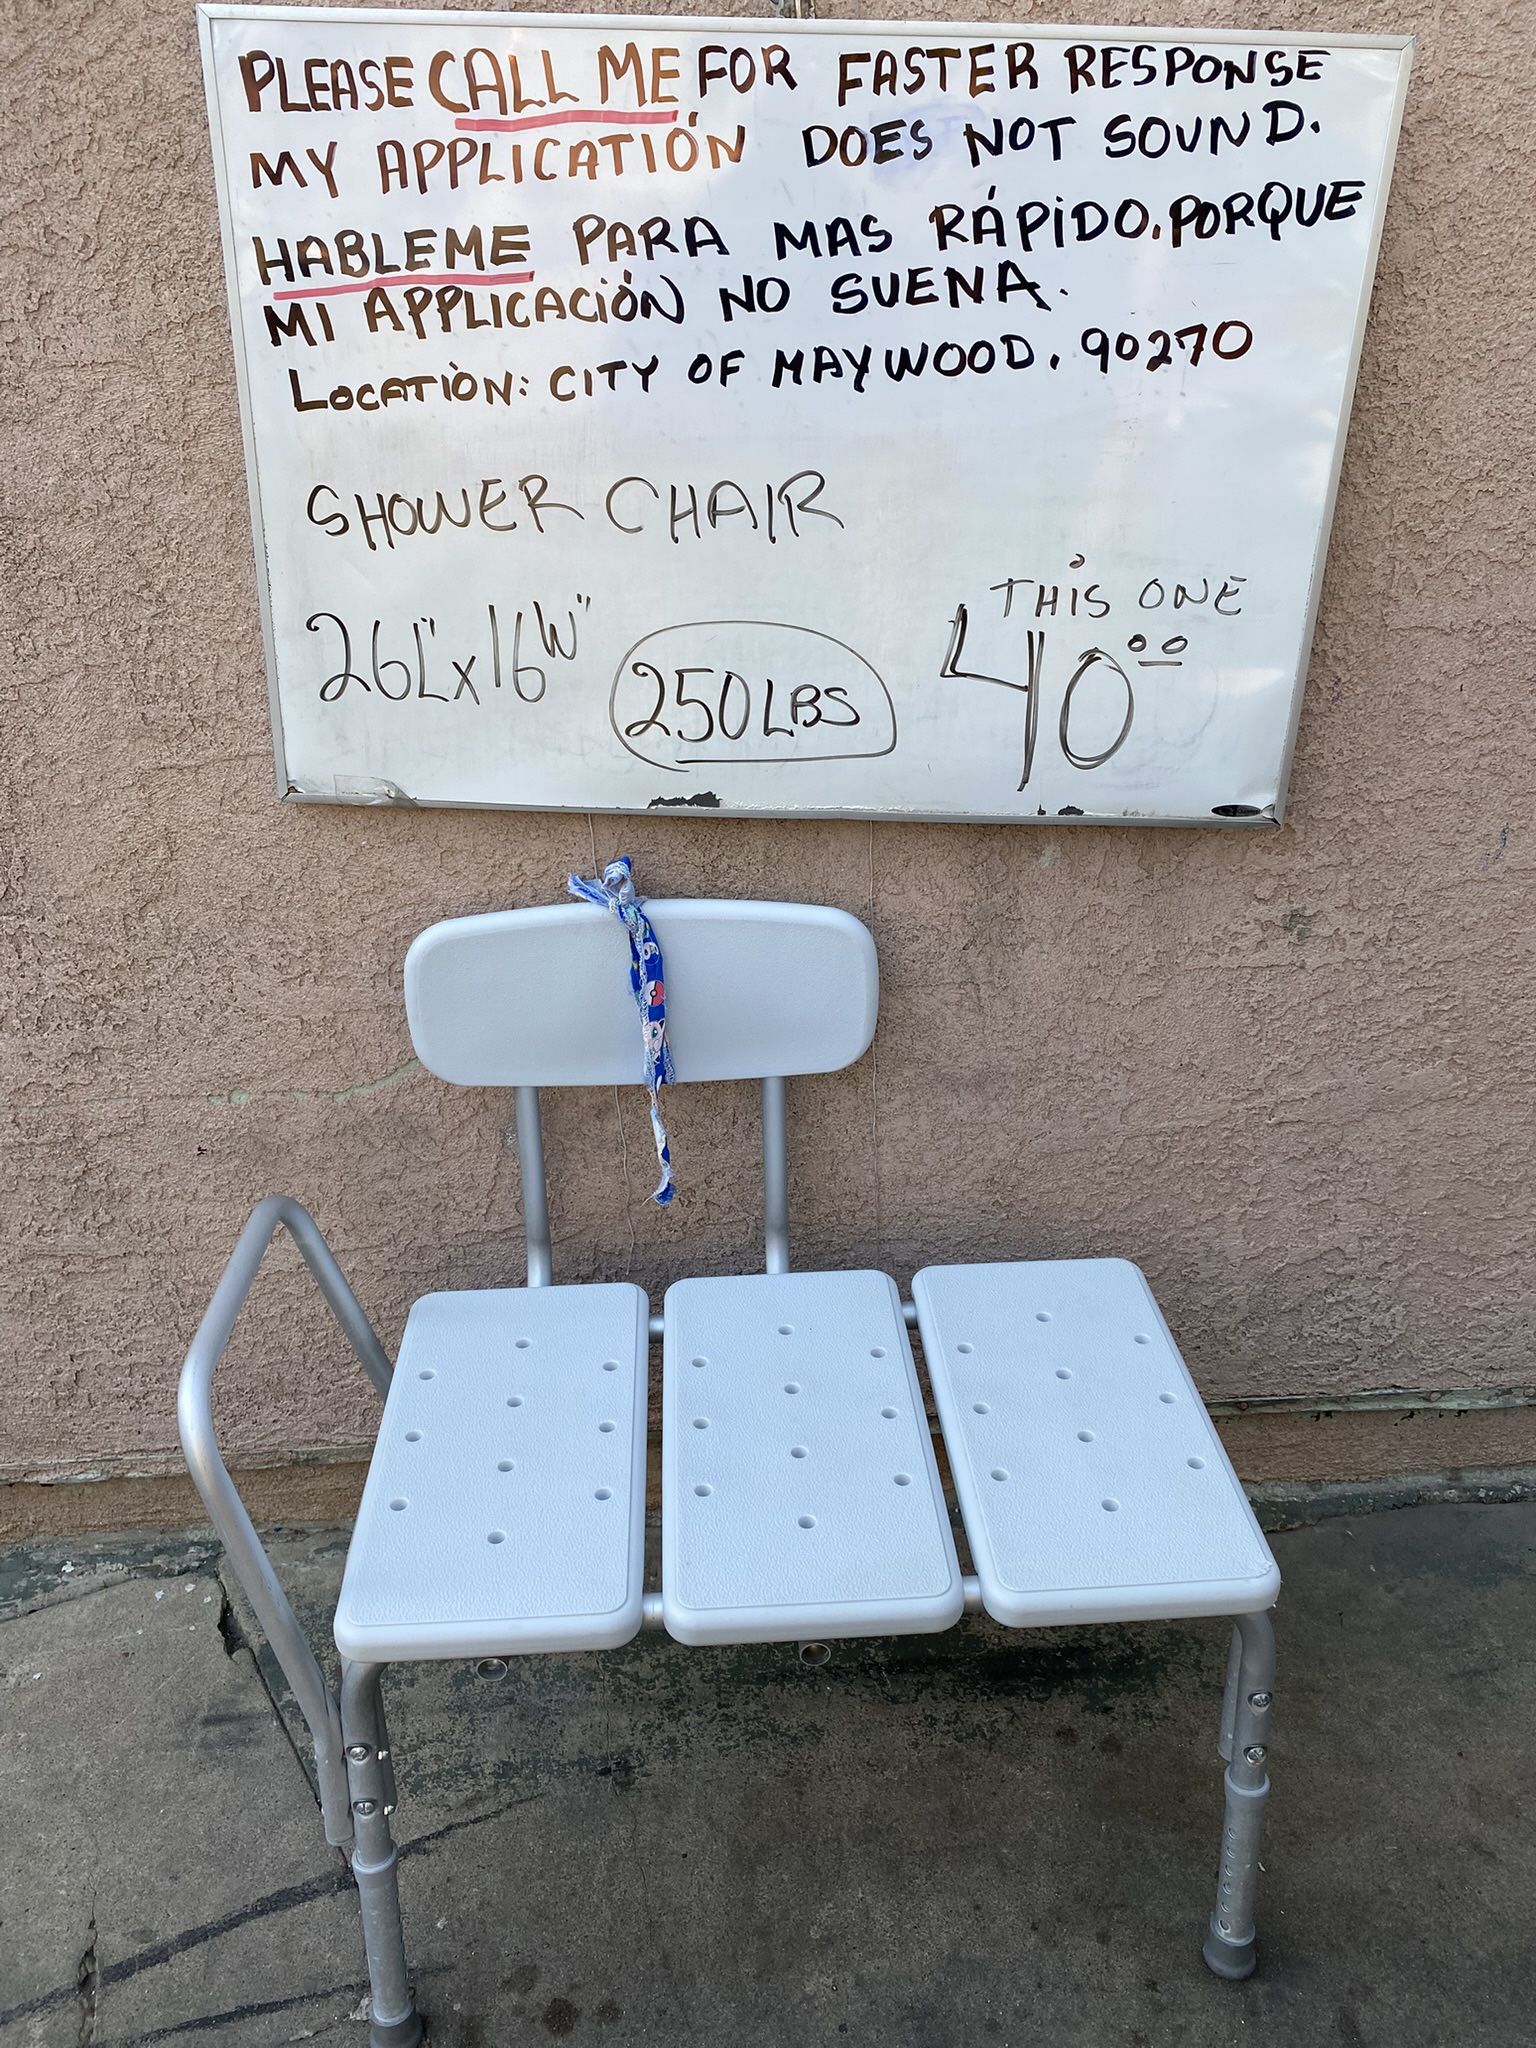 PLEASE CALL ME FOR FASTER RESPONSE
MY APPLICATIÓN DOES NOT SOUND.
HABLEME PARA MAS RÁPIDO. PORQUE
MI APPLICACIÓN NO SUENA.
LOCATIÓN: CITY OF MAYWOOD. 90270
SHOWER CHAIR
THIS ONE
26L" x 16W" 250 LBS 40.00